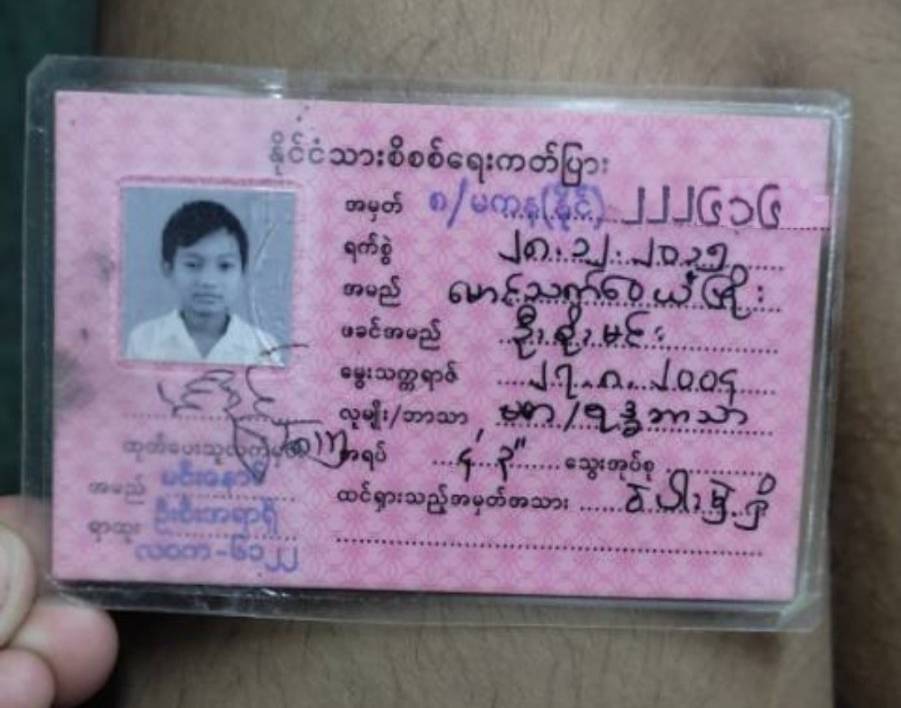 နိုင်ငံသားစိစစ်ရေးကတ်ပြား
အမှတ် ၈/မကန(နိုင်) ၂၂၂၆၁၆
ရက်စွဲ ၂၈.၁၂.၂၀၁၅
အမည် မောင်သက်ဝေယံဖြိုး
ဖခင်အမည် ဦးစိုးမင်း
မွေးသက္ကရာဇ် ၂၇.၈.၂၀၀၄
လူမျိုး/ဘာသာ ဗမာ/ဗုဒ္ဓဘာသာ
အရပ် ၄' ၃" သွေးအုပ်စု
ထင်ရှားသည့်အမှတ်အသား ဝဲပါးမှဲ့ရှိ
ထုတ်ပေးသူလက်မှတ်
အမည် မင်းနောင်
ရာထူး ဦးစီးအရာရှိ
လဝက-၆၁၂၂